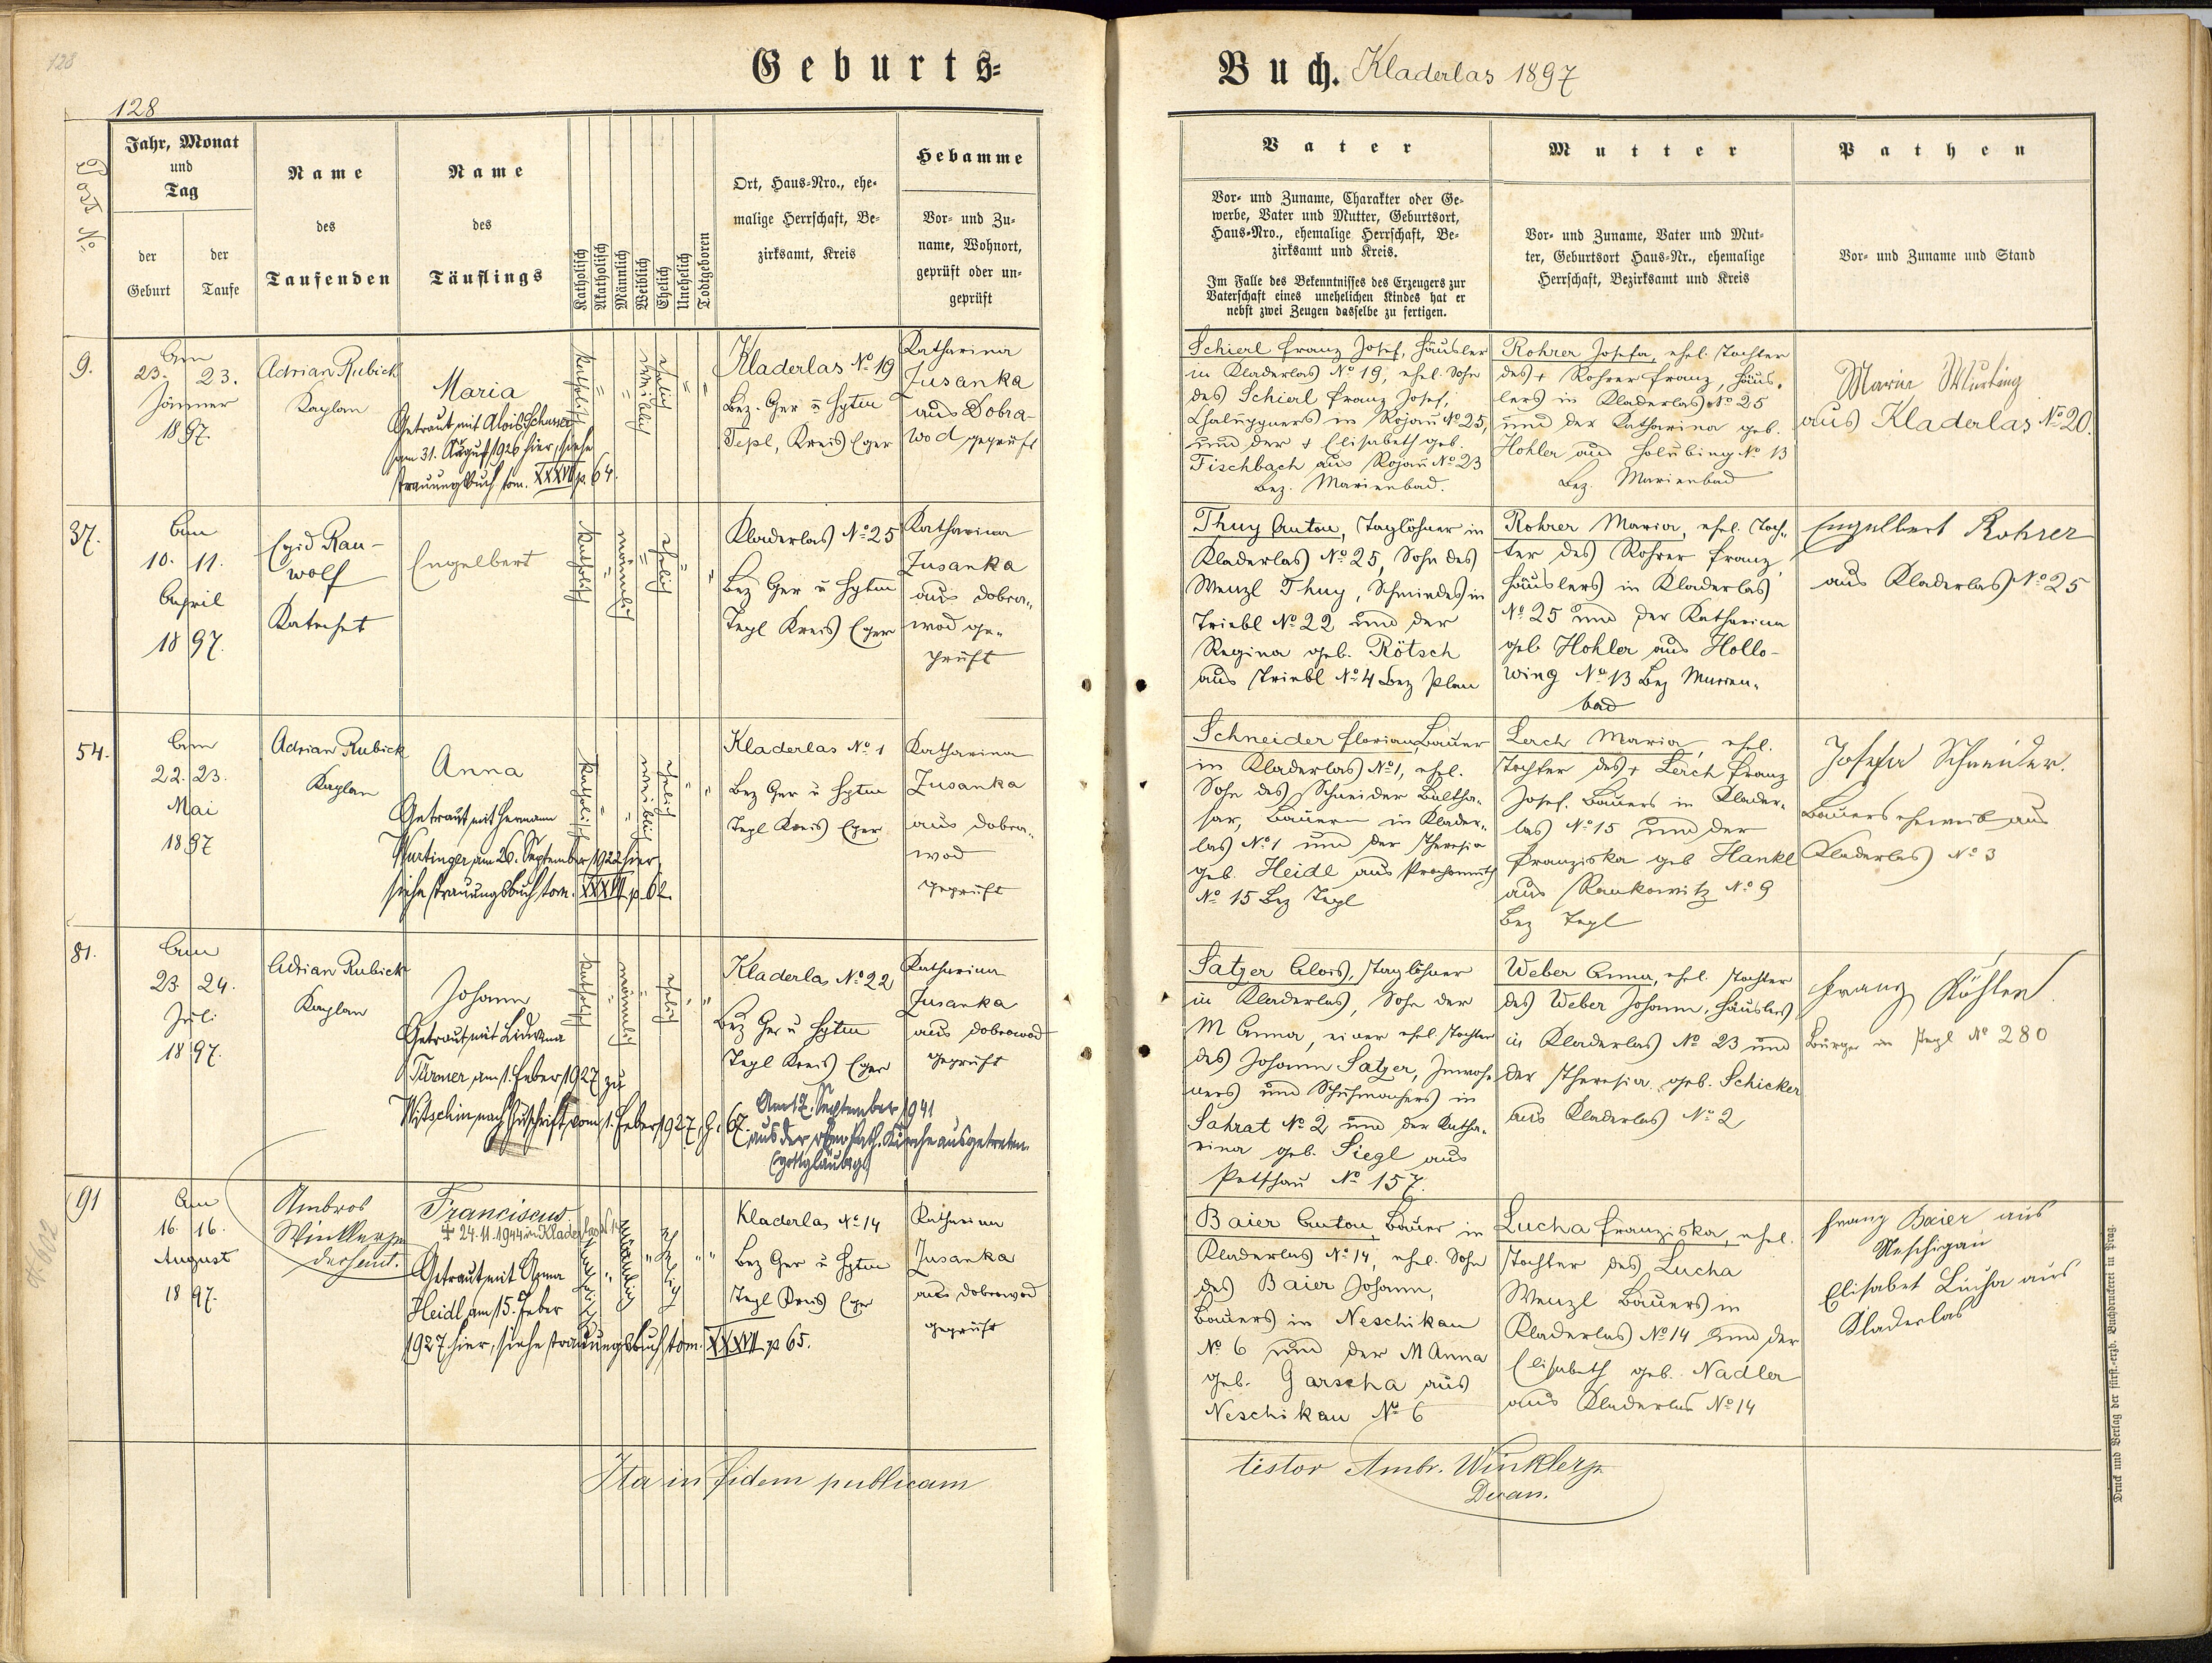 128
Geburts-
Buch. Kladerlas 1897
128
Post No.
Jahr, Monat
und
Tag
der
Geburt
der
Taufe
Name
des
Taufenden
Name
des
Täuflings
Katholisch
Akatholisch
Männlich
Weiblich
Ehelich
Unehelich
Todtgeboren
Ort, Haus-Nro., ehe-
malige Herrschaft, Be-
zirksamt, Kreis
Hebamme
Vor- und Zu-
name, Wohnort,
geprüft oder un-
geprüft
Vater
Vor- und Zuname, Charakter oder Ge-
werbe, Vater und Mutter, Geburtsort,
Haus-Nro., ehemalige Herrschaft, Be-
zirksamt und Kreis.
Im Falle des Bekenntnisses des Erzeugers zur
Vaterschaft eines unehelichen Kindes hat er
nebst zwei Zeugen dasselbe zu fertigen.
Mutter
Vor- und Zuname, Vater und Mut-
ter, Geburtsort Haus-Nr., ehemalige
Herrschaft, Bezirksamt und Kreis
Pathen
Vor- und Zuname und Stand
9.
Am
23. 23.
Jänner
1897.
Adrian Rubick
Kaplan
Maria
Getraut mit Alois
am 31. August 1926 hier, siehe
Trauungsbuch tom. XXXVII p. 64.
katholisch
"
"
weiblich
ehelich
"
"
Kladerlas No 19
Bez. Ger u Hptm
Tepl, Kreis Eger
Katharina
Zusanka
aus Dobra-
wod geprüft
Schierl Franz Josef, Häusler
in Kladerlas No 19, ehel. Sohn
des Schierl Franz Josef,
Chaluppners in Rojau No 25,
und der + Elisabeth geb.
Fischbach aus Rojau No 23
Bez. Marienbad.
Rohrer Josefa, ehel. Tochter
des + Rohrer Franz, Häus-
lers in Kladerlas No 25
und der Katharina geb.
Hohler aus Holubing No 13
Bez. Marienbad
Maria
aus Kladerlas No 20.
37.
Am
10. 11.
April
1897.
Egid Rau-
wolf
Katechet
Engelbert
katholisch
"
männlich
"
ehelich
"
"
Kladerlas No 25
Bez Ger u Hptm
Tepl Kreis Eger
Katharina
Zusanka
aus Dobra-
wod ge-
prüft
Thuy Anton, Taglöhner in
Kladerlas No 25, Sohn des
Wenzl Thuy, Schmiedes in
Triebl No 22 und der
Regina geb. Rötsch
aus Triebl No 4 Bez Plan
Rohrer Maria, ehel. Toch-
ter des Rohrer Franz,
Häuslers in Kladerlas
No 25 und der Katharina
geb Hohler aus Hollo-
wing No 13 Bez Marien-
bad
Engelbert Rohrer
aus Kladerlas No 25
54.
Am
22. 23.
Mai
1897
Adrian Rubick
Kaplan
Anna
Getraut mit Hermann
Wurtinger am 26. September 1922 hier,
siehe Trauungsbuch tom. XXXVII p. 62.
katholisch
"
"
weiblich
ehelich
"
"
Kladerlas No 1
Bez Ger u Hptm
Tepl Kreis Eger
Katharina
Zusanka
aus Dobra-
wod
geprüft
Schneider Florian, Bauer
in Kladerlas No 1, ehel.
Sohn des Schneider Baltha-
sar, Bauern in Klader-
las No 1 und der Theresia
geb. Heidl aus Prochomuth
No 15 Bez Tepl
Lerch Maria, ehel.
Tochter des + Lerch Franz
Josef. Bauers in Klader-
las No 15 und der
Franziska geb Hankl
aus Rankowitz No 9
Bez Tepl
Josefa Schneider.
Bauers eheweib aus
Kladerlas No 3
81.
Am
23 24.
Juli
1897.
Adrian Rubick
Kaplan
Johann
Getraut mit Liduvina
Türmer am 1. Feber 1927 zu
Witschin nach Zuschrift vom 1. Feber 1927, G. 67.
Am 12. September 1941
aus der röm. kath. Kirche ausgetreten.
(gottgläubig)
katholisch
"
männlich
"
ehelich
"
"
Kladerlas No 22
Bez Ger u Hptm
Tepl Kreis Eger
Katharina
Zusanka
aus Dobrowod
geprüft
Satzer Alois, Taglöhner
in Kladerlas, Sohn der
M Anna, einer ehel. Tochter
des Johann Satzer, Inwoh-
ners und Schuhmachers in
Sahrat No 2 und der Katha-
rina geb. Siegl aus
Petschau No 157.
Weber Anna, ehel. Tochter
des Weber Johann, Häuslers
in Kladerlas No 23 und
der Theresia geb. Schicker
aus Kladerlas No 2
Franz Köhler
Bürger in Tepl No 280
91
Am
16. 16.
August
1897.
Ambros
Winkler
Franciscus
+ 24.11.1944 in Kladerlas No 14
Getraut mit Anna
Heidl am 15. Feber
1927 hier, siehe Trauungsbuch tom. XXXVII p 65.
katholisch
"
männlich
"
ehelich
"
"
Kladerlas No 14
Bez Ger u Hptm
Tepl Kreis Eger
Katharina
Zusanka
aus Dobrowod
geprüft
Baier Anton, Bauer in
Kladerlas No 14, ehel. Sohn
des Baier Johann,
Bauers in Neschikau
No 6 und der M Anna
geb. Garscha aus
Neschikau No 6
Lucha Franziska, ehel.
Tochter des Lucha
Wenzl Bauers in
Kladerlas No 14 und der
Elisabeth geb. Nadler
aus Kladerlas No 14
Franz Baier aus
Neschigau
Elisabet Lucha aus
Kladerlas
Ita in fidem publicam
testor Ambr. Winkler
Decan.
Druck und Verlag der fürst.-erzb. Buchdruckerei in Prag.